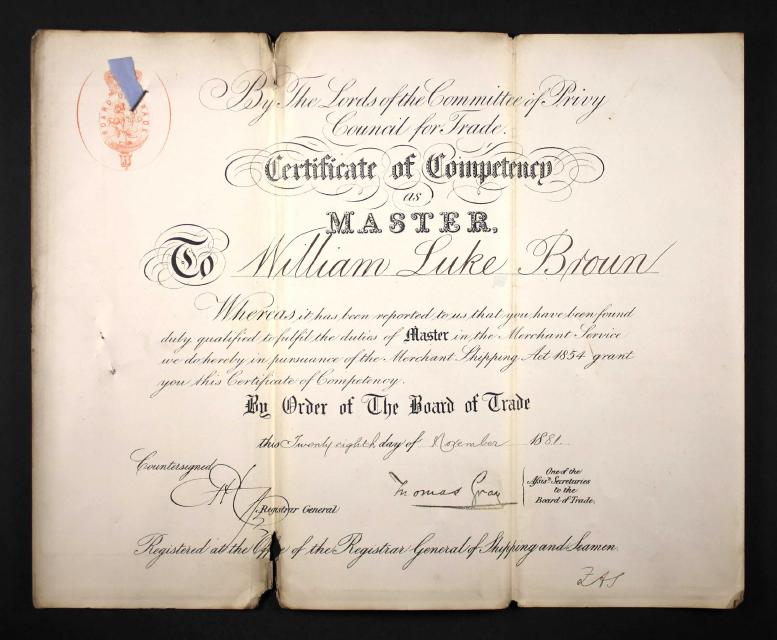 BOARD OF TRADE
By The Lords of the Committee of Privy
Council for Trade.
Certificate of Competency
as
MASTER.
To William Luke Broun
Whereas it has been reported to us that you have been found
duly qualified to fulfil the duties of Master in the Merchant Service
we do hereby in pursuance of the Merchant Shipping Act 1854 grant
you this Certificate of Competency.
By Order of The Board of Trade
this Twenty eighth day of November 1881.
Countersigned
Registrar General
Thomas Gray
One of the
Assist. Secretaries
to the
Board of Trade.
Registered at the Office of the Registrar General of Shipping and Seamen.